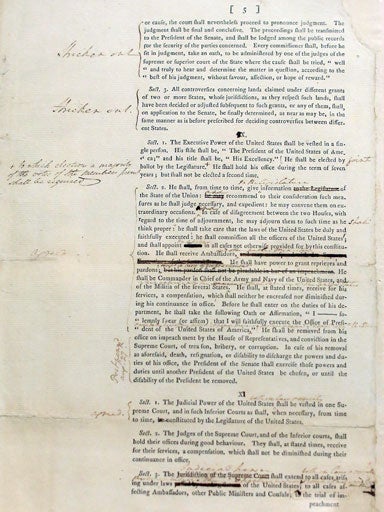 [ 5 ]
or cause, the court shall nevertheless proceed to pronounce judgment. The
judgment shall be final and conclusive. The proceedings shall be transmitted
to the President of the Senate, and shall be lodged among the public records
for the security of the parties concerned. Every commissioner shall, before he
sit in judgment, take an oath, to be administered by one of the judges of the
supreme or superior court of the State where the cause shall be tried, " well
" and truly to hear and determine the matter in question, according to the
" best of his judgment, without favour, affection, or hope of reward."
Stricken out.
Sect. 3. All controversies concerning lands claimed under different grants
of two or more States, whose jurisdictions, as they respect such lands, shall
have been decided or adjusted subsequent to such grants, or any of them, shall,
on application to the Senate, be finally determined, as near as may be, in the
same manner as is before prescribed for deciding controversies between differ-
ent States.
Stricken out.
X.
Sect. 1. The Executive Power of the United States shall be vested in a sin-
gle person. His stile shall be, " The President of the United States of Ame-
rica;" and his title shall be, " His Excellency." He shall be elected by joint
ballot by the Legislature. He shall hold his office during the term of seven
years; but shall not be elected a second time.
to which election a majority
of the votes of the members present
shall be required
Sect. 2. He shall, from time to time, give information to the Legislature of
the State of the Union: he may recommend to their consideration such mea-
sures as he shall judge necessary, and expedient: he may convene them on ex-
traordinary occasions. In case of disagreement between the two Houses, with
regard to the time of adjournment, he may adjourn them to such time as he
think proper: he shall take care that the laws of the United States be duly and
faithfully executed: he shall commission all the officers of the United States;
and shall appoint in all cases not otherwise provided for by this constitu-
tion. He shall receive Ambassadors,
He shall have power to grant reprieves and
pardons; but his pardon shall not be pleadable in bar of an impeachment. He
shall be Commander in Chief of the Army and Navy of the United States, and
of the Militia of the several States. He shall, at stated times, receive for his
services, a compensation, which shall neither be encreased nor diminished dur-
ing his continuance in office. Before he shall enter on the duties of his de-
partment, he shall take the following Oath or Affirmation, " I — so-
" lemnly swear (or affirm) that I will faithfully execute the Office of Presi-
" dent of the United States of America." He shall be removed from his
office on impeachment by the House of Representatives, and conviction in the
Supreme Court, of treason, bribery, or corruption. In case of his removal
as aforesaid, death, resignation, or disability to discharge the powers and du-
ties of his office, the President of the Senate shall exercise those powers and
duties until another President of the United States be chosen, or until the
disability of the President be removed.
agreed.
XI
Sect. 1. The Judicial Power of the United States shall be vested in one Su-
preme Court, and in such Inferior Courts as shall, when necessary, from time
to time, be constituted by the Legislature of the United States.
agreed.
Sect. 2. The Judges of the Supreme Court, and of the Inferior courts, shall
hold their offices during good behaviour. They shall, at stated times, receive
for their services, a compensation, which shall not be diminished during their
continuance in office.
Sect. 3. The Jurisdiction of the Supreme Court shall extend to all cases aris-
ing under laws of the United States; to all cases af-
fecting Ambassadors, other Public Ministers and Consuls; to the trial of im-
peachment